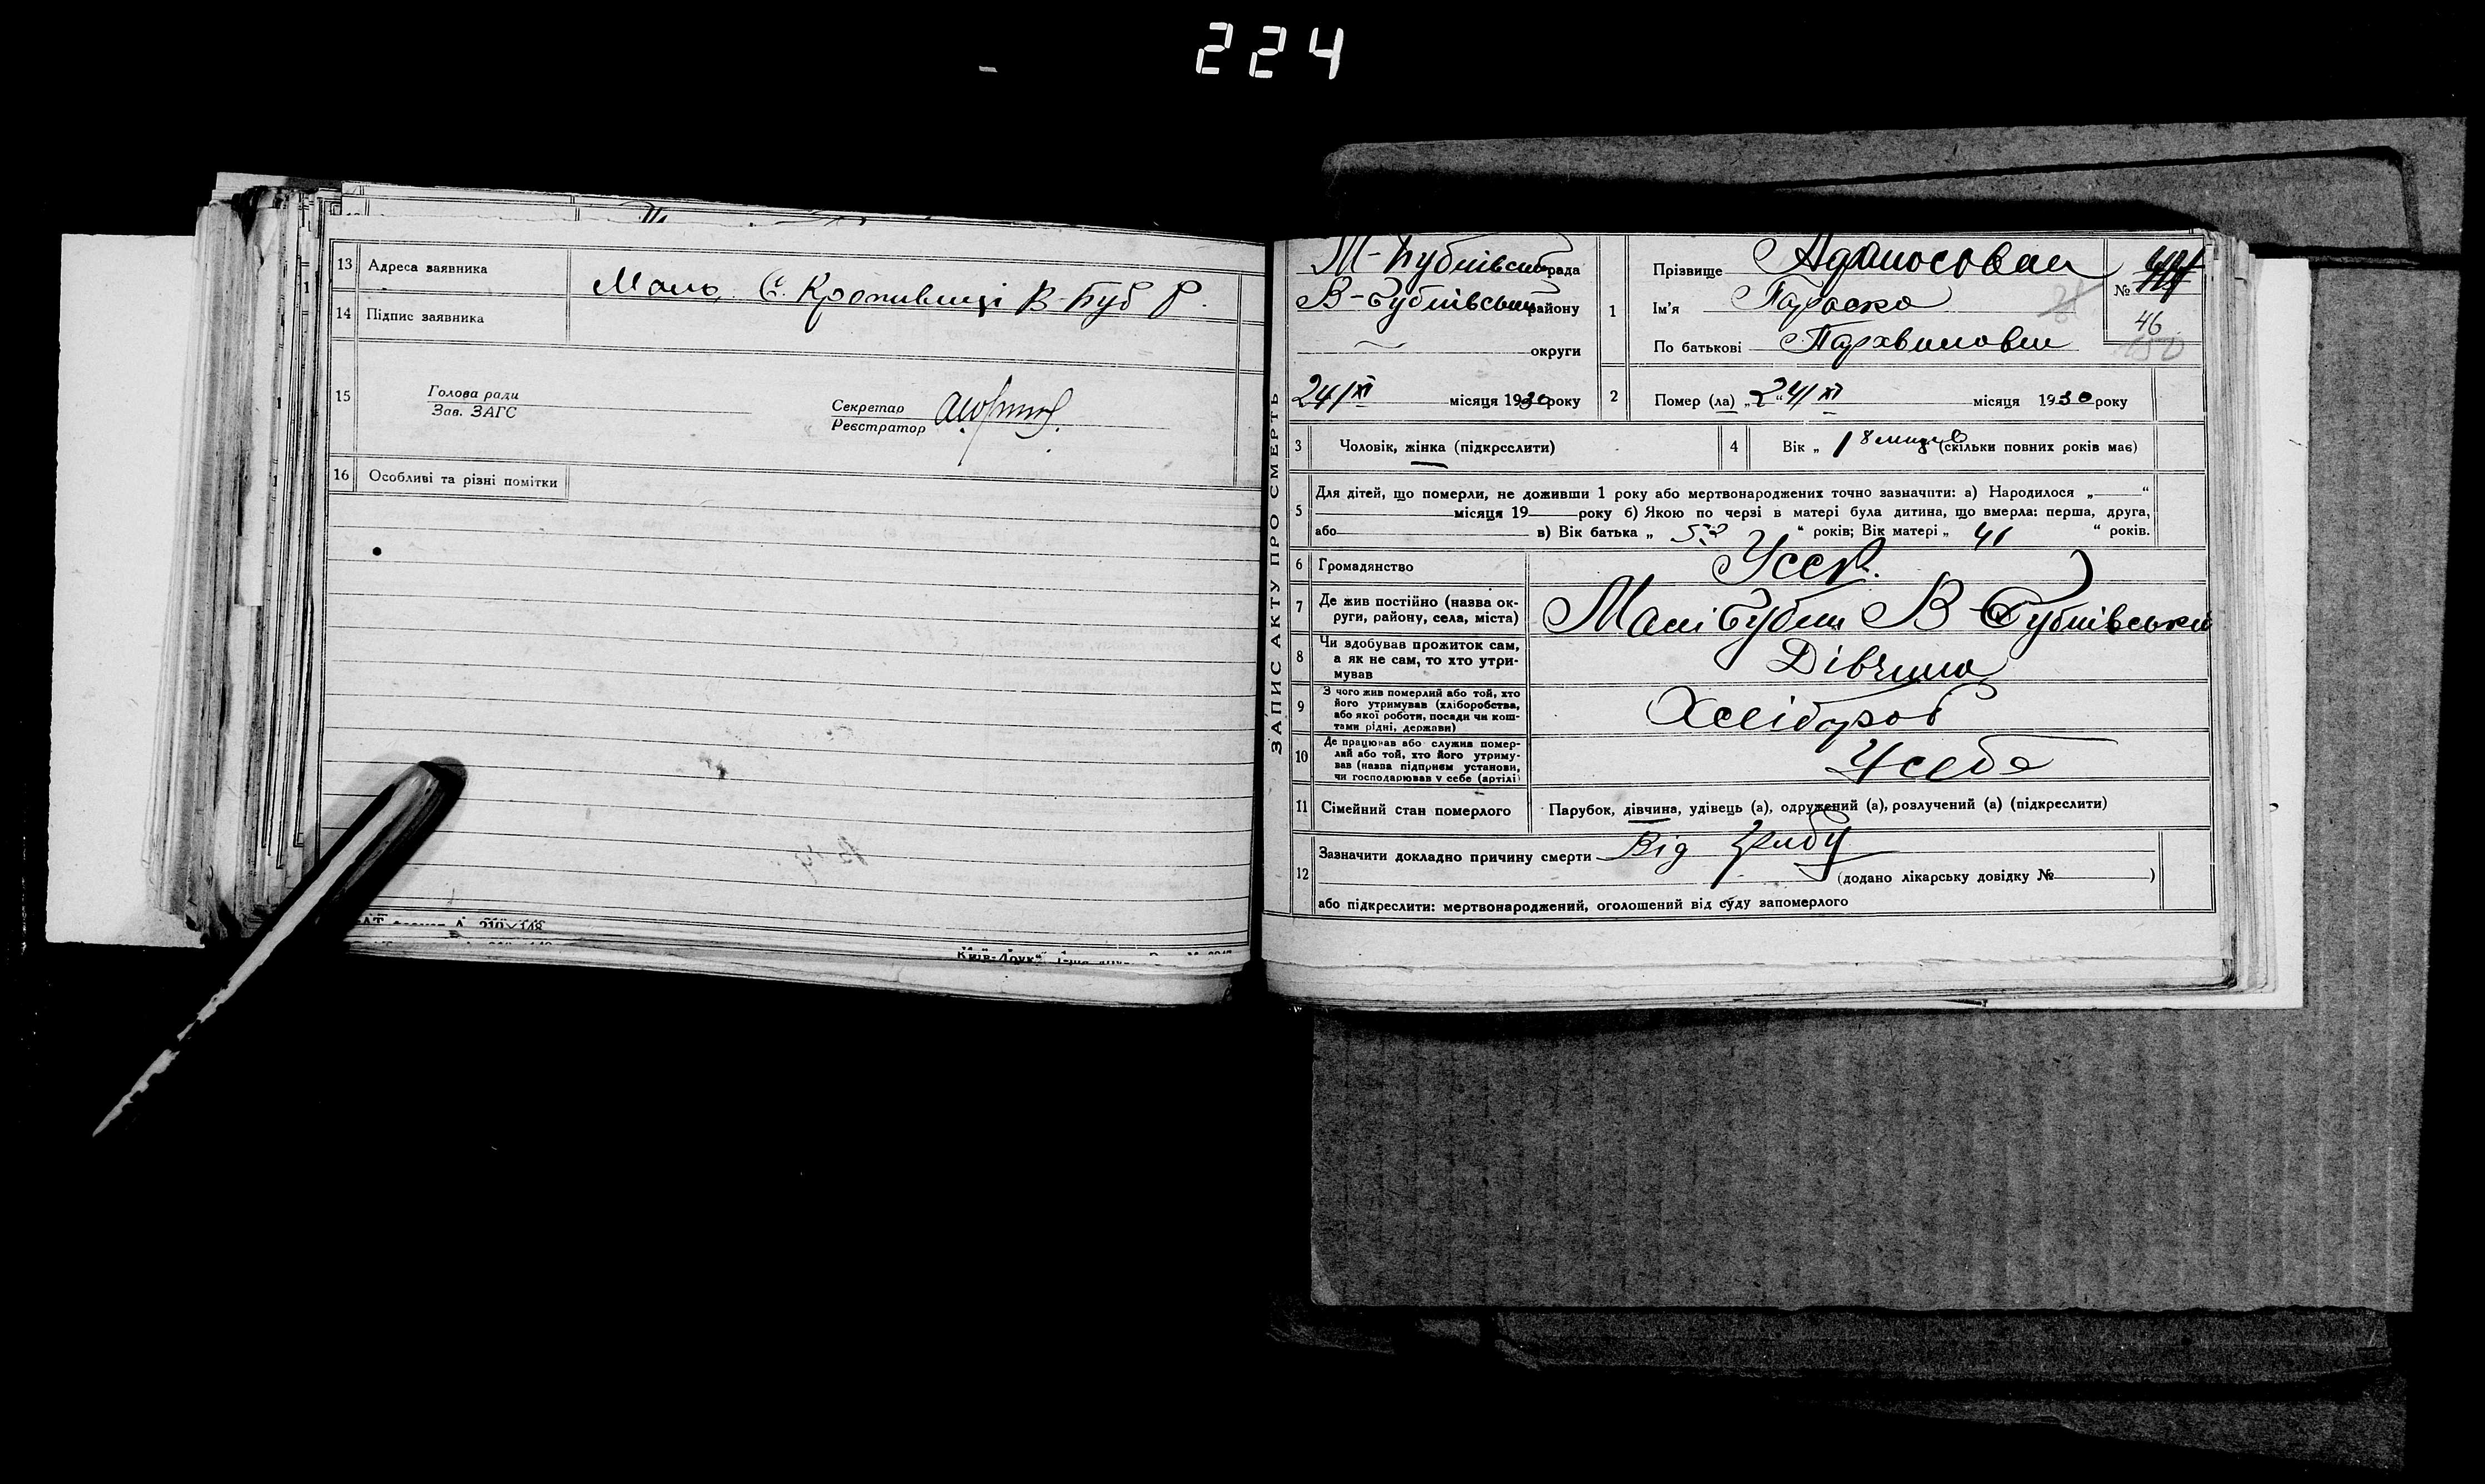 224
13 Адреса заявника
Мало С. Кропивиці В-Буб Р.
14 Підпис заявника
15 Голова ради
Зав. ЗАГС
Секретар
Реєстратор
16 Особливі та різні помітки
210×148
ЗАПИС АКТУ ПРО СМЕРТЬ
М-Бубнівська рада
В-Бубнівський району
округи
24/XI місяця 1930 року
1 Прізвище
Ім'я Параска
По батькові Пархвиловна
№
46
2 Помер (ла) „24/XI місяця 1930 року
3 Чоловік, жінка (підкреслити)
4 Вік „ 18 (скільки повних років має)
5 Для дітей, що померли, не доживши 1 року або мертвонароджених точно зазначити: а) Народилося „ “
місяця 19 року б) Якою по черзі в матері була дитина, що вмерла: перша, друга,
або в) Вік батька „ “ років; Вік матері „ 41 “ років.
6 Громадянство УССР.
7 Де жив постійно (назва округи, району, села, міста)
Малі Бубни В Бубнівський
8 Чи здобував прожиток сам,
а як не сам, то хто утримував
Дівчина
9 З чого жив померлий або той, хто
його утримував (хліборобства,
або якої роботи, посади чи коштами рідні, держави)
Хлібороб
10 Де працював або служив померлий або той, хто його утримував (назва підприєм установи,
чи господарював у себе (артілі)
У себе
11 Сімейний стан померлого
Парубок, дівчина, удівець (а), одружений (а), розлучений (а) (підкреслити)
12 Зазначити докладно причину смерти Від
(додано лікарську довідку № )
або підкреслити: мертвонароджений, оголошений від суду запомерлого